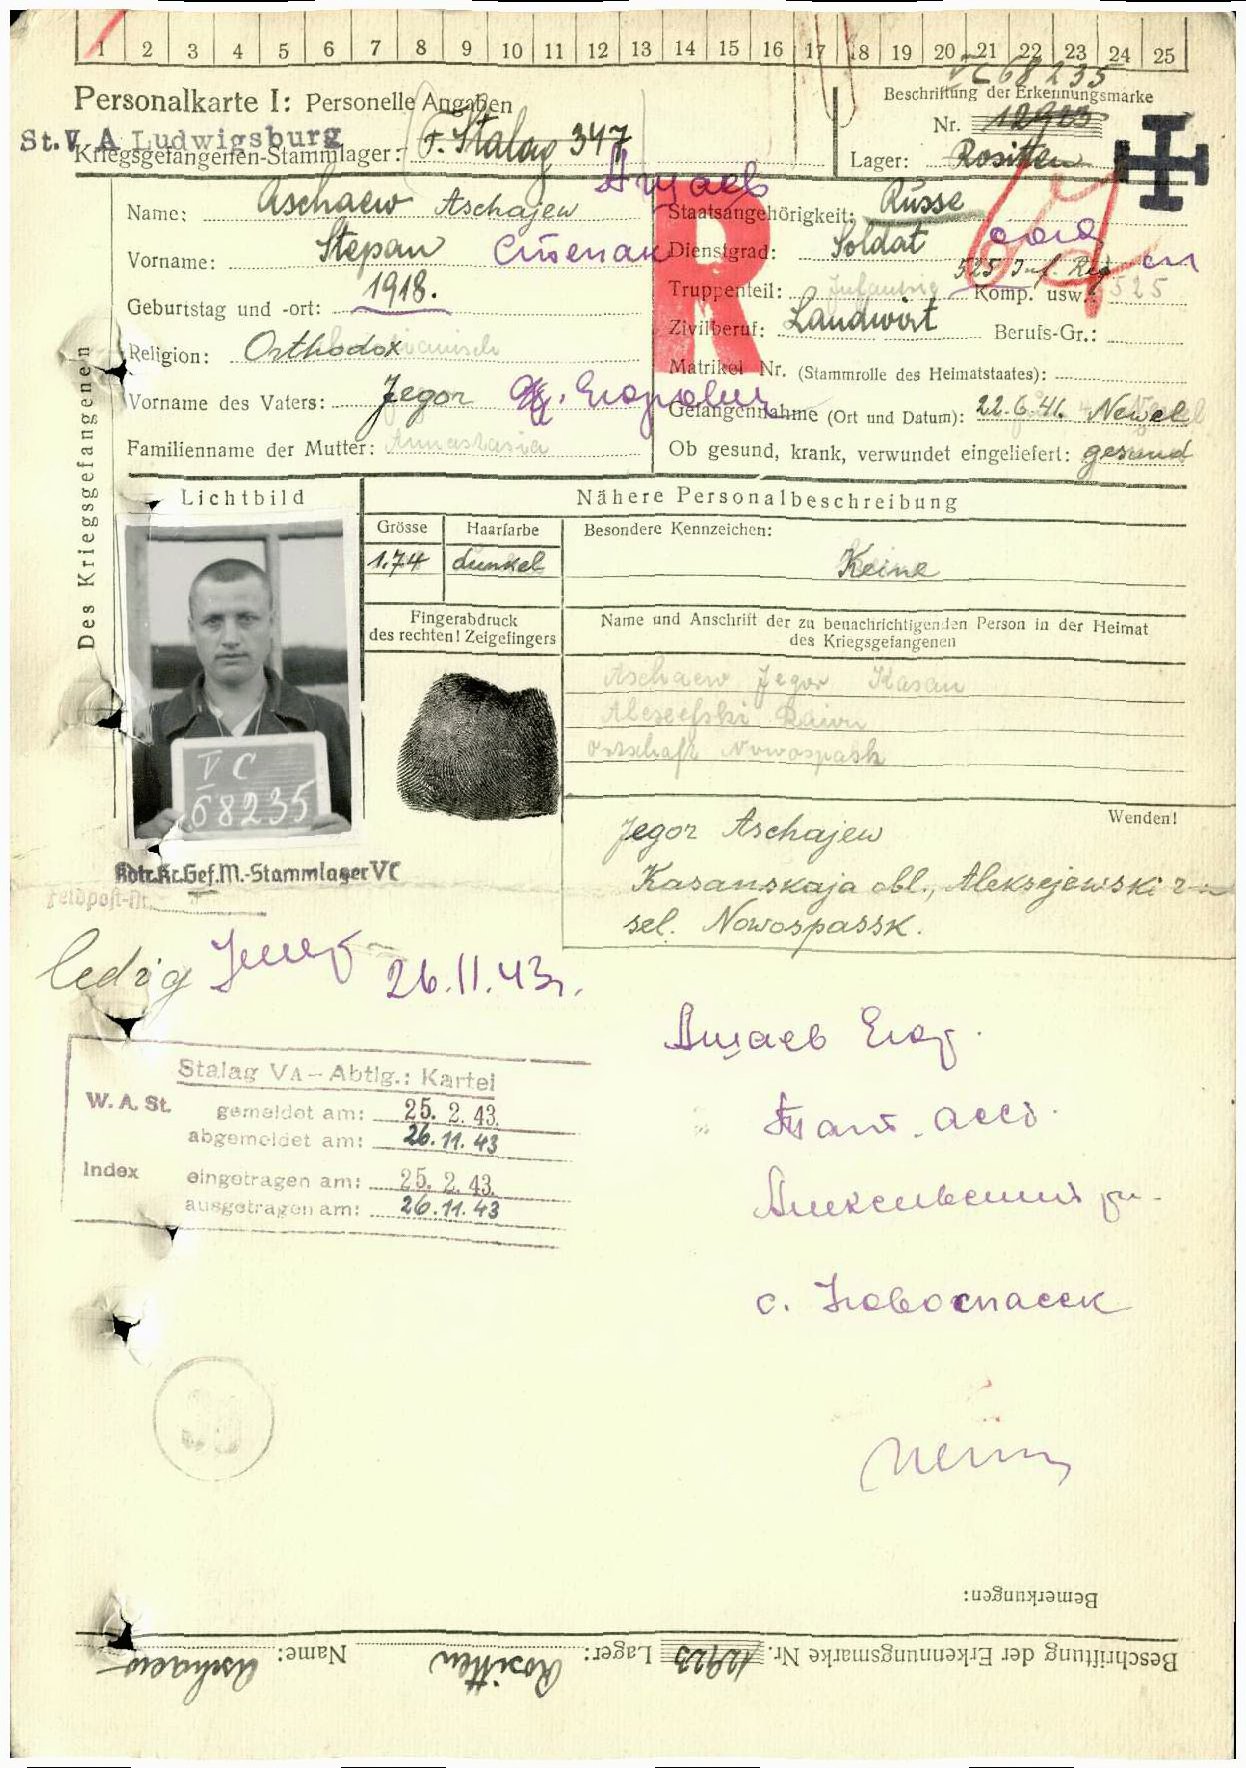 1 2 3 4 5 6 7 8 9 10 11 12 13 14 15 16 17 18 19 20 21 22 23 24 25
VC 68235
Personalkarte I: Personelle Angaben
Beschriftung der Erkennungsmarke
Nr. 12923
St. V A Ludwigsburg
Kriegsgefangenen-Stammlager: F. Stalag 347
Lager: Rositten
Ащаев
Des Kriegsgefangenen
Name: Aschaew Aschajew
Vorname: Stepan Степан
Geburtstag und -ort: 1918.
Religion: Orthodox
Vorname des Vaters: Jegor
Familienname der Mutter: Annastasia
R
Staatsangehörigkeit: Russe
Dienstgrad: Soldat
525 Inf. Reg
Truppenteil: Infantrie Komp. usw.: 525
Zivilberuf: Landwirt Berufs-Gr.:
Matrikel Nr. (Stammrolle des Heimatstaates):
Gefangennahme (Ort und Datum): 22.6.41. Newel
Ob gesund, krank, verwundet eingeliefert: gesund
Lichtbild
Nähere Personalbeschreibung
Grösse Haarfarbe Besondere Kennzeichen:
1.74 dunkel Keine
Fingerabdruck
des rechten! Zeigefingers
Name und Anschrift der zu benachrichtigenden Person in der Heimat
des Kriegsgefangenen
Aschaew Jegor Kasan
Alexeefski Raion
Ortschaft Nowospask
V C
68235
Wenden!
Jegor Aschajew
Kasanskaja obl., Aleksejewski r-n
sel. Nowospassk.
Kdtr. Kr. Gef. M.-Stammlager VC
Feldpost-Nr.
ledig
26.11.43г.
Ащаев Егор
Stalag VA – Abtlg.: Kartei
W. A. St. gemeldet am: 25. 2. 43.
abgemeldet am: 26. 11. 43
Index eingetragen am: 25. 2. 43.
ausgetragen am: 26. 11. 43
с. Новоспасск
Bemerkungen:
Beschriftung der Erkennungsmarke Nr. 12923 Lager: Rositten Name: Aschaew